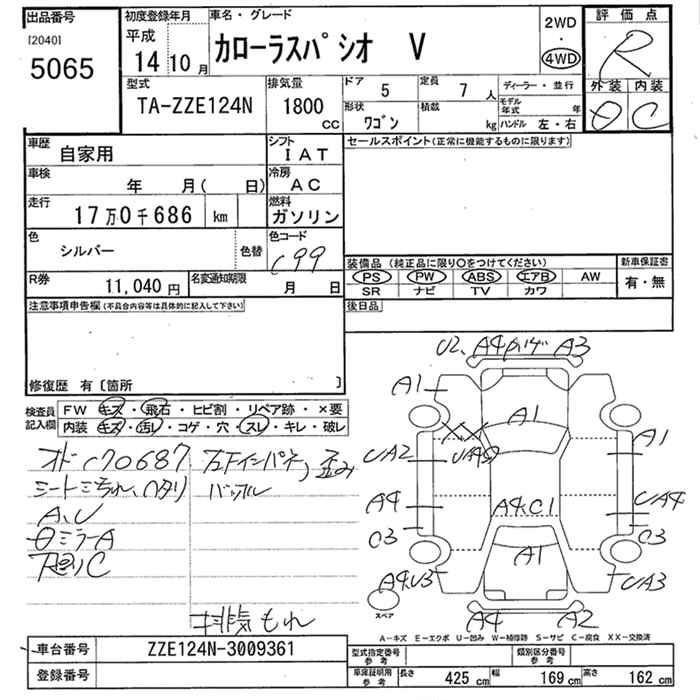 出品番号
[2040]
5065
初度登録年月
平成
14年10月
車名・グレード
カローラスパシオ V
2WD
・
4WD
評価点
R
外装 内装
C
型式
TA-ZZE124N
排気量
1800
CC
ドア
5
定員
7人
形状
ワゴン
積載
kg
ディーラー・並行
モデル年式 年
ハンドル 左・右
車歴
自家用
シフト
IAT
車検
年 月( 日)
冷房
AC
走行
17万0千686 km
燃料
ガソリン
色
シルバー
色替
色コード
C99
R券
11,040円
名変通知期限
月 日
セールスポイント(正常に機能するものに限ります)
装備品(純正品に限り○をつけてください)
PS PW ABS エアB AW
SR ナビ TV カワ
新車保証書
有・無
後日品
注意事項申告欄(不具合内容等は具体的に記入して下さい)
修復歴 有〔箇所 〕
検査員記入欄
FW キズ・飛石・ヒビ割・リペア跡・×要
内装 キズ・汚レ・コゲ・穴・スレ・キレ・破レ
オドC70687
シートヨゴれ、ヘタリ
A、U
ミラーA
下廻りC
左下インパネ、歪み
バックル
排気もれ
U2、A4 A3
A1
A1
A1
UA2
UA2
A4
A4.C1
UA4
C3
C3
A1
A4.U3
UA3
スペア
A4
A2
A-キズ E-エクボ U-凹み W-補修跡 S-サビ C-腐食 XX-交換済
車台番号
ZZE124N-3009361
登録番号
型式指定番号
参考
類別区分番号
参考
車庫証明用
参考
長さ 425 cm
幅 169 cm
高さ 162 cm